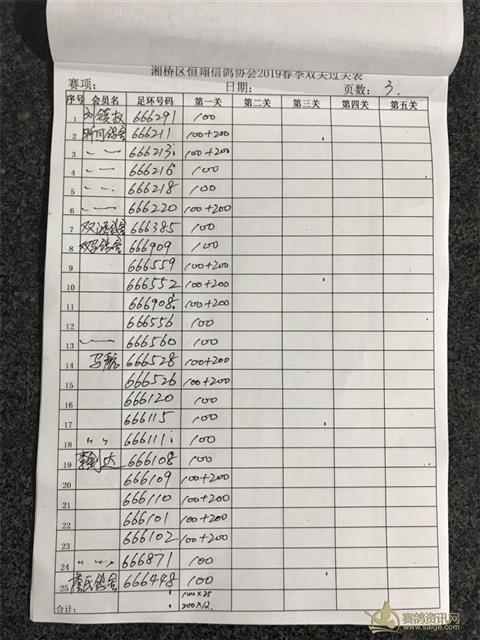 湘桥区恒翔信鸽协会2019春季双关过关表
赛项: 日期: 页数: 3.
序号 会员名 足环号码 第一关 第二关 第三关 第四关 第五关
1 666291 100
2 666211 100+200
3 〃 666213 100+200
4 〃 666216 100
5 〃 666218 100
6 〃 666220 100+200
7 666385 100
8 666909 100
9 666559 100+200
10 666552 100+200
11 666908 100+200
12 666556 100
13 〃 666560 100
14 马航 666528 100+200
15 666526 100+200
16 666120 100
17 666115 100
18 〃 666111 100
19 666108 100
20 666109 100+200
21 666110 100+200
22 666101 100+200
23 666102 100+200
24 〃 666871 100
25 666448 100
合计: 100×25
200×12
赛鸽资讯网
www.saige.com